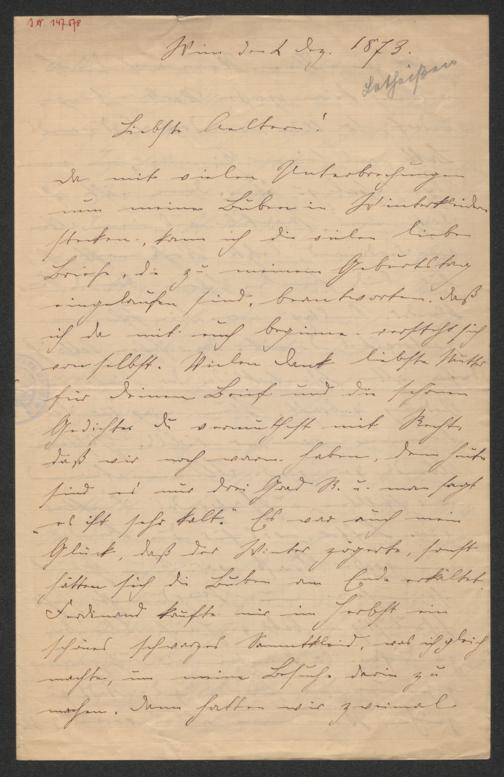 J.N. 147.678
Wien den 2 Dez. 1873.
Lotheißen
Liebste Aeltern!
Da mit vielen Unterbrechungen
nun meine Buben in Winterkleidern
stecken, kann ich die vielen lieben
Briefe, die zu meinem Geburtstag
eingelaufen sind, beantworten. Daß
ich da mit euch beginne versteht sich
von selbst. Vielen Dank liebste Mutter
für deinen Brief und die schönen
Gedichte. Du vermuthest mit Recht
daß wir noch warm haben, denn heute
sind es nur drei Grad R. u. man sagt
"es ist sehr kalt." Es war auch mein
Glück, daß der Winter zögerte, sonst
hätten sich die Buben am Ende erkältet.
Ferdinand kaufte mir im Herbst ein
schönes schwarzes Sammtkleid, was ich gleich
machte, um meine Besuche darin zu
machen. Dann hatten wir zweimal